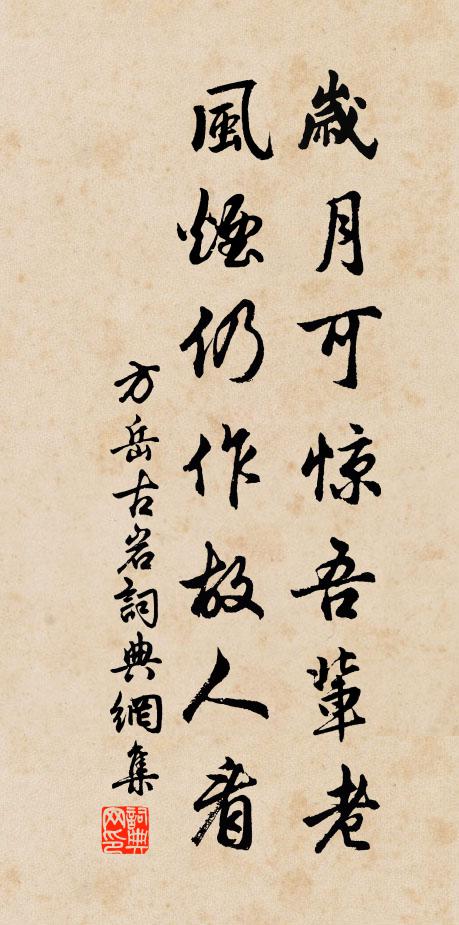 歲月可惊吾輩老
風煙仍作故人看
方岳古岩詞典網集
詞典網印